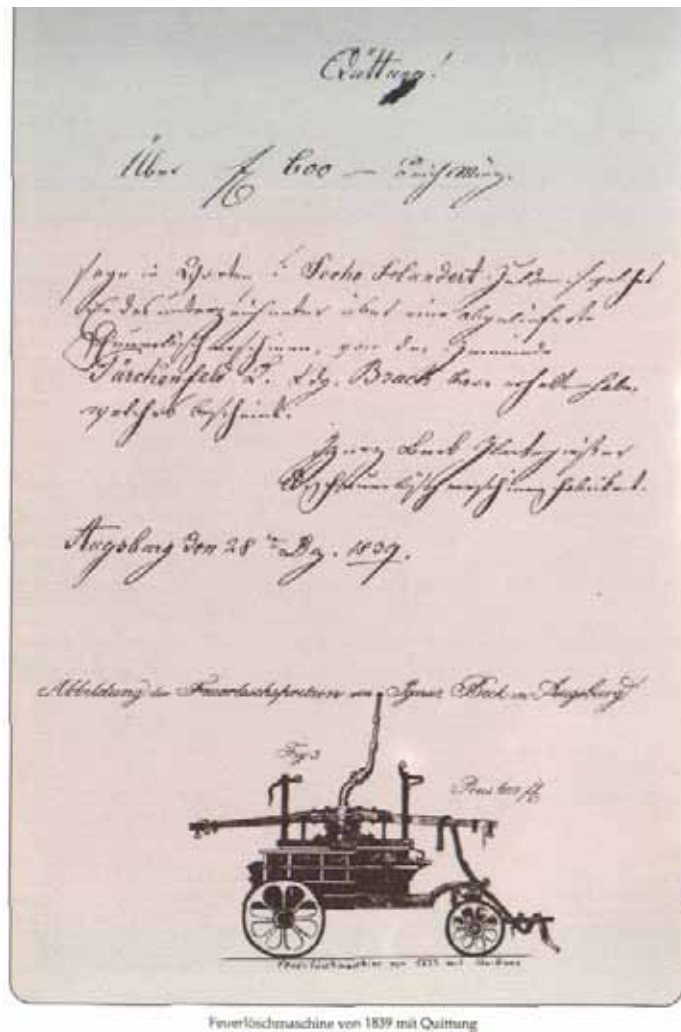 Quittung!
Über f 600 — Reichswäh.
sage in Worten: Sechs Hundert Gulden welche
der unterzeichneter über eine abgelieferte
Feuerlöschmaschinen, von der Gemeinde
Türchenfeld L. Ldg. Bruck baar erhalten habe,
welches bescheint.
Ignaz Beck
Feuerlöschmaschinen Fabrikat.
Augsburg den 28ten Dez. 1839.
Abbildung der Feuerlöschspritzen von Ignaz Beck in Augsburg
Fig 3
Preis 600 f
Feuerlöschmaschine von 1839 mit
Feuerlöschmaschine von 1839 mit Quittung